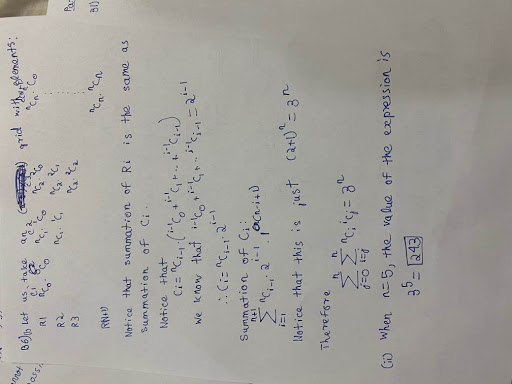 B6) (i) Let us take an grid with elements:
C1 C2 C3 Cn+1
R1 ⁿC₀·⁰C₀ ⁿC₁·¹C₀ ⁿC₂·²C₀ ........ ⁿCₙ·ⁿC₀
R2 ⁿC₁·¹C₁ ⁿC₂·²C₁
R3 ⁿC₂·²C₂
R(n+1) ⁿCₙ·ⁿCₙ
Notice that summation of Ri is the same as
summation of Ci.
Notice that
Ci = ⁿCᵢ₋₁(ⁱ⁻¹C₀ + ⁱ⁻¹C₁ + ... + ⁱ⁻¹Cᵢ₋₁)
We know that ⁱ⁻¹C₀ + ⁱ⁻¹C₁ + ... ⁱ⁻¹Cᵢ₋₁ = 2ⁱ⁻¹
∴ Ci = ⁿCᵢ₋₁·2ⁱ⁻¹
Summation of Ci:
n+1
Σ ⁿCᵢ₋₁·2ⁱ⁻¹·1⁽ⁿ⁻ⁱ⁺¹⁾
i=1
Notice that this is just (2+1)ⁿ = 3ⁿ
Therefore
n n
Σ Σ ⁿCᵢ ⁱCⱼ = 3ⁿ
j=0 i=j
(ii) When n=5, the value of the expression is
3⁵ = 243
B1)